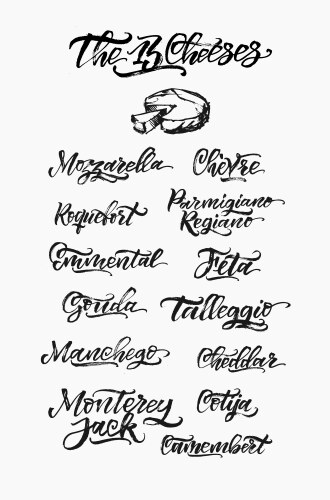 The 13 Cheeses
Mozzarella
Chèvre
Roquefort
Parmigiano
Regiano
Emmental
Feta
Gouda
Talleggio
Manchego
Cheddar
Monterey
Jack
Cotija
Camembert